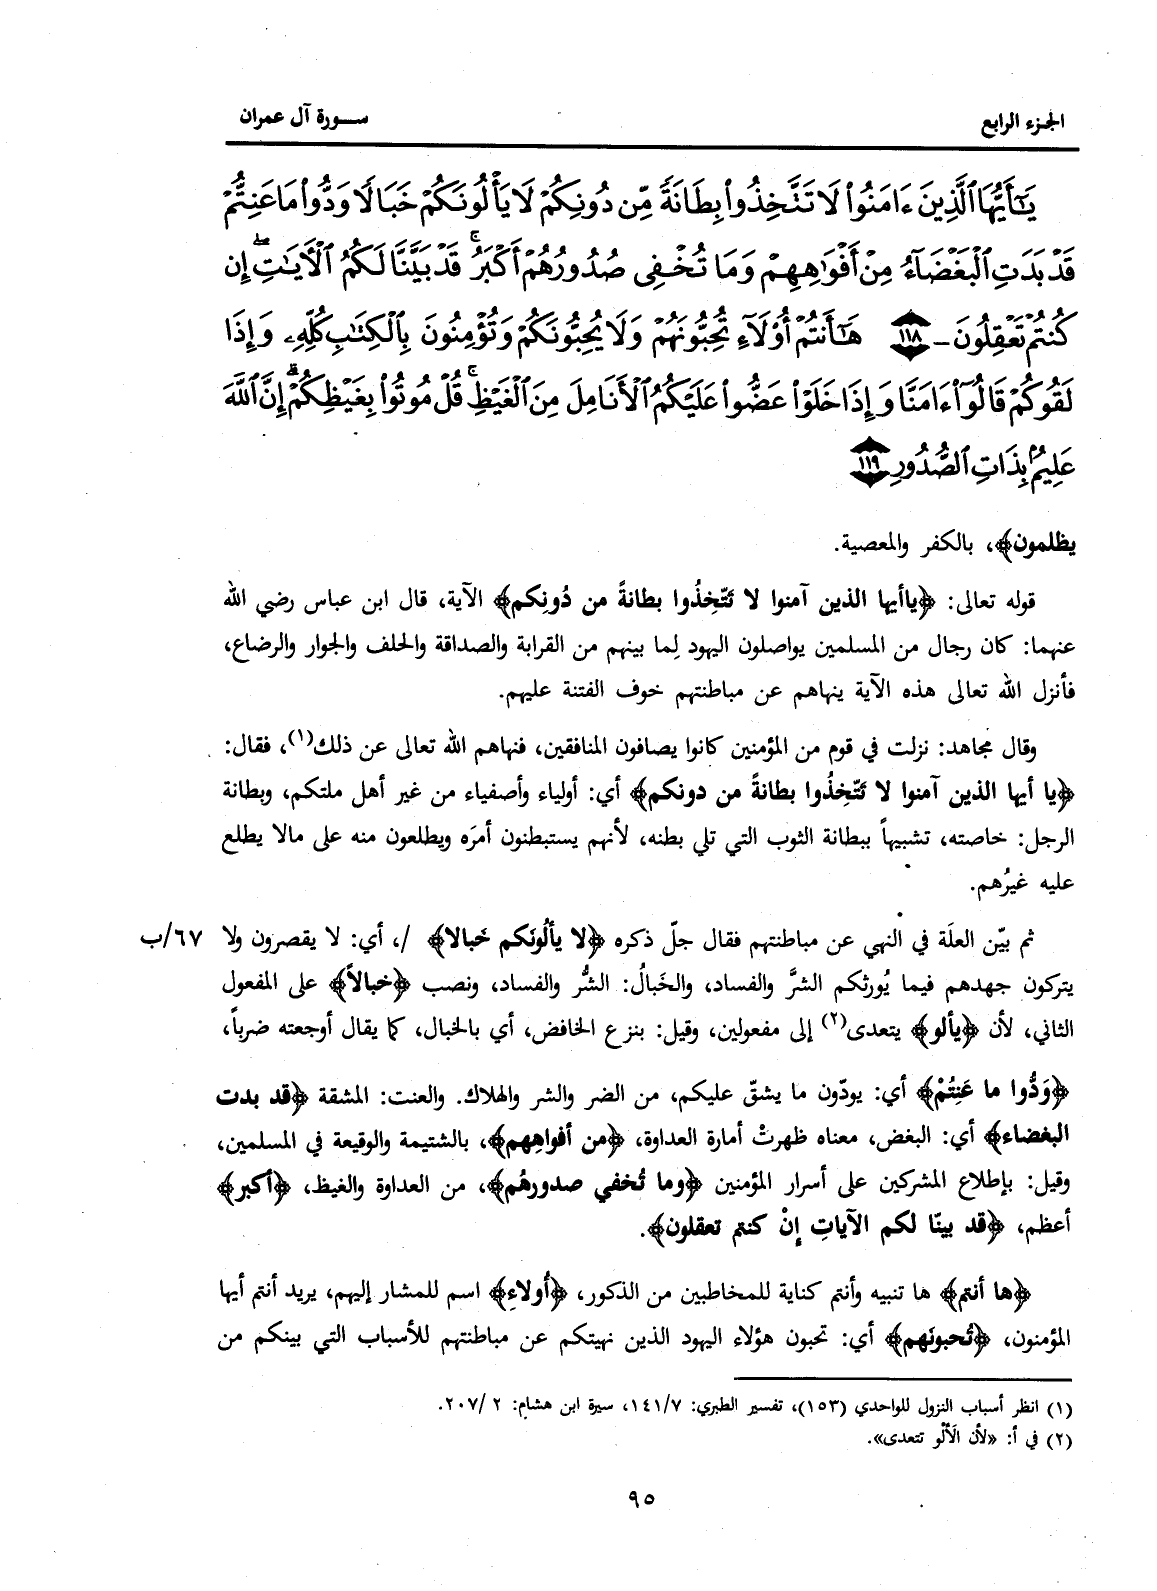 الجزء الرابع
سورة آل عمران
يَـٰٓأَيُّهَا ٱلَّذِينَ ءَامَنُوا۟ لَا تَتَّخِذُوا۟ بِطَانَةً مِّن دُونِكُمْ لَا يَأْلُونَكُمْ خَبَالًا وَدُّوا۟ مَا عَنِتُّمْ
قَدْ بَدَتِ ٱلْبَغْضَآءُ مِنْ أَفْوَٰهِهِمْ وَمَا تُخْفِى صُدُورُهُمْ أَكْبَرُ ۚ قَدْ بَيَّنَّا لَكُمُ ٱلْـَٔايَـٰتِ ۖ إِن
كُنتُمْ تَعْقِلُونَ ـ ﴿١١٨﴾ هَـٰٓأَنتُمْ أُو۟لَآءِ تُحِبُّونَهُمْ وَلَا يُحِبُّونَكُمْ وَتُؤْمِنُونَ بِٱلْكِتَـٰبِ كُلِّهِۦ وَإِذَا
لَقُوكُمْ قَالُوٓا۟ ءَامَنَّا وَإِذَا خَلَوْا۟ عَضُّوا۟ عَلَيْكُمُ ٱلْأَنَامِلَ مِنَ ٱلْغَيْظِ ۚ قُلْ مُوتُوا۟ بِغَيْظِكُمْ ۗ إِنَّ ٱللَّهَ
عَلِيمٌۢ بِذَاتِ ٱلصُّدُورِ ﴿١١٩﴾
يظلمون﴾، بالكفر والمعصية.
قوله تعالى: ﴿ياأيها الذين آمنوا لا تَتّخِذُوا بطانةً من دُونِكم﴾ الآية، قال ابن عباس رضي الله
عنهما: كان رجال من المسلمين يواصلون اليهود لِما بينهم من القرابة والصداقة والحلف والجوار والرضاع،
فأنزل الله تعالى هذه الآية ينهاهم عن مباطنتهم خوف الفتنة عليهم.
وقال مجاهد: نزلت في قوم من المؤمنين كانوا يصافون المنافقين، فنهاهم الله تعالى عن ذلك(١)، فقال:
﴿يا أيها الذين آمنوا لا تَتّخِذُوا بطانةً من دونكم﴾ أي: أولياء وأصفياء من غير أهل ملتكم، وبطانة
الرجل: خاصته، تشبيهاً ببطانة الثوب التي تلي بطنه، لأنهم يستبطنون أمرَه ويطلعون منه على مالا يطلع
عليه غيرُهم.
ثم بيّن العلّة في النهي عن مباطنتهم فقال جلّ ذكره ﴿لا يألُونَكم خَبالا﴾ /، أي: لا يقصرون ولا ٦٧/ب
يتركون جهدهم فيما يُورثكم الشرَّ والفساد، والخَبالُ: الشُّر والفساد، ونصب ﴿خبالاً﴾ على المفعول
الثاني، لأن ﴿يألو﴾ يتعدى(٢) إلى مفعولين، وقيل: بنزع الخافض، أي بالخبال، كما يقال أوجعته ضرباً،
﴿وَدُّوا ما عَنِتُمْ﴾ أي: يودّون ما يشقّ عليكم، من الضر والشر والهلاك. والعنت: المشقة ﴿قد بدت
البغضاء﴾ أي: البغض، معناه ظهرتْ أمارة العداوة، ﴿من أفواهِهم﴾، بالشتيمة والوقيعة في المسلمين،
وقيل: بإطلاع المشركين على أسرار المؤمنين ﴿وما تُخفي صدورهُم﴾، من العداوة والغيظ، ﴿أكبر﴾
أعظم، ﴿قد بينّا لكم الآياتِ إنْ كنتم تعقلون﴾.
﴿ها أنتم﴾ ها تنبيه وأنتم كناية للمخاطبين من الذكور، ﴿أُولاءِ﴾ اسم للمشار إليهم، يريد أنتم أيها
المؤمنون، ﴿تُحبونَهم﴾ أي: تحبون هؤلاء اليهود الذين نهيتكم عن مباطنتهم للأسباب التي بينكم من
(١) انظر أسباب النزول للواحدي (١٥٣)، تفسير الطبري: ١٤١/٧، سيرة ابن هشام: ٢ /٢٠٧.
(٢) في أ: «لأن الَألْو تتعدى».
٩٥